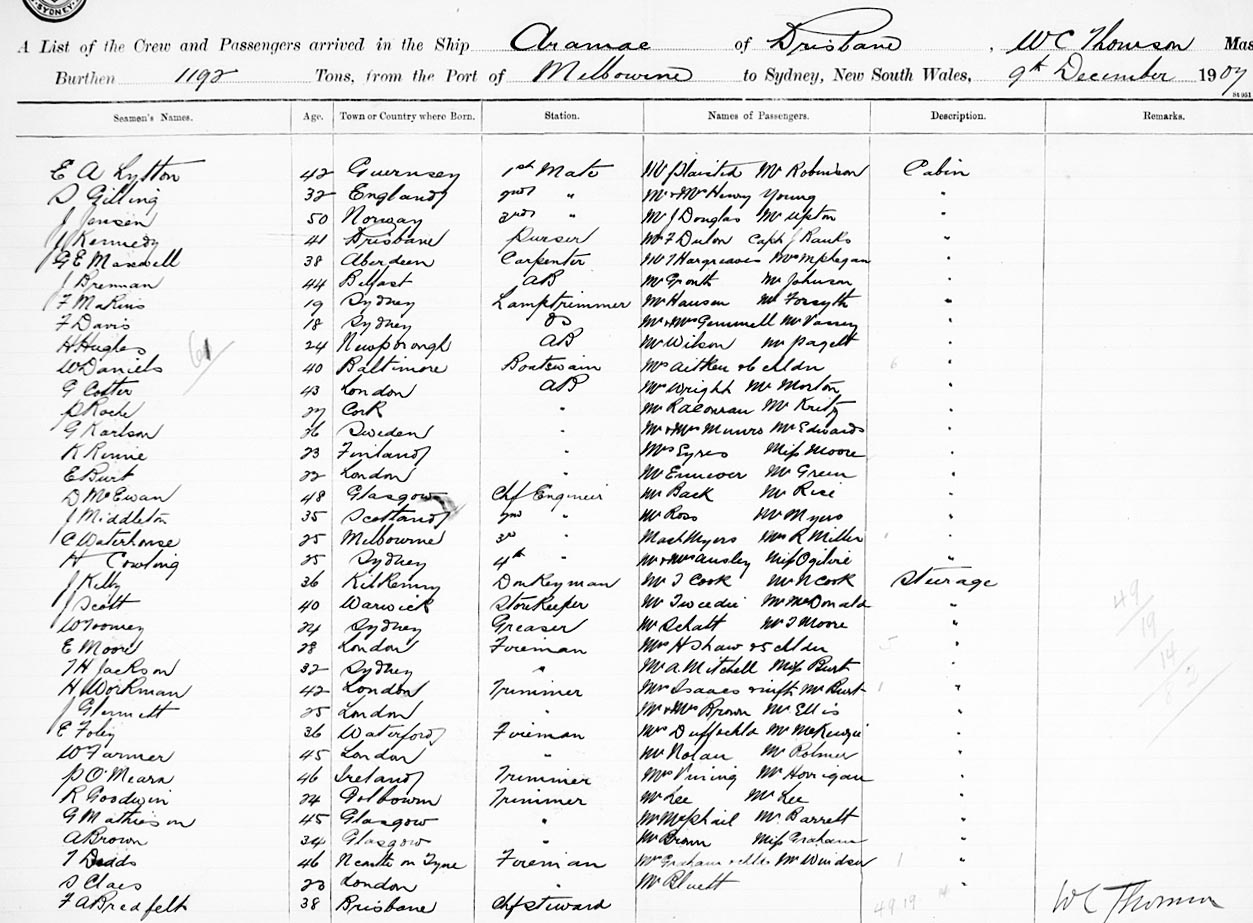 SYDNEY
A List of the Crew and Passengers arrived in the Ship Aramac of Brisbane, W C Thomson Mas
Burthen 1192 Tons, from the Port of Melbourne to Sydney, New South Wales, 9th December 1907
Seamen's Names. Age. Town or Country where Born. Station. Names of Passengers. Description. Remarks.
E A Lytton 42 Guernsey 1st Mate Mr Plaisted Mr Robinson Cabin
S Gilling 32 England 2nd " Mr & Mrs Henry Young "
J Jensen 50 Norway 3rd " Mr J Douglas Mr Upton "
J Kennedy 41 Brisbane Purser Mr F Dulon Capt J Banks "
G E Maxwell 38 Aberdeen Carpenter Mr T Hargreaves Mrs McPhegan "
J Brennan 44 Belfast AB Mr Mr Johnson "
F Makins 19 Sydney Lamptrimmer Mr Hansen Mr Forsyth "
F Davis 18 Sydney OS Mr & Mrs Gemmell Mr "
H Hughes 24 Newborough AB Mr Wilson Mr Pagett "
61
W Daniels 40 Baltimore Boatswain Mrs Aitken & 6 cldn 6 "
G Cotter 43 London AB Mr Wright Mr Morton "
P Roche 27 Cork " Mr Mr "
G Karlson 26 Sweden " Mr & Mrs Munro Mr Edwards "
K Rinne 23 Finland " Mrs Eyres Miss Moore "
E Burt 22 London " Mr Mr Green "
D McEwan 48 Glasgow Chf Engineer Mr Back Mr Rise "
J Middleton 35 Scotland 2nd " Mr Ross Mr Myers "
C Waterhouse 25 Melbourne 3rd " Mast Myers Mrs R Miller 1 "
H Cowling 25 Sydney 4th " Mr & Mrs Ansley Miss Ogilvie "
J Kelly 36 Kilkenny Donkeyman Mr T Cook Mr N Cook Steerage
J Scott 40 Warwick Storekeeper Mr Tweedie Mr McDonald "
W Toomey 24 Sydney Greaser Mr Schatt Mr T Moore "
E Moore 28 London Fireman Mrs H Shaw & 5 cldn 5 "
T H Jackson 32 Sydney " Mr A Mitchell Miss Burt "
H Workman 42 London Trimmer Mrs Isaacs & inft Mr Burt 1 "
J Glennett 25 London " Mr & Mrs Brown Mr Ellis "
E Foley 36 Waterford Fireman Mrs Duff Mr McKenzie "
W Farmer 45 London " Mr Nolan Mr "
P O'Meara 46 Ireland Trimmer Mrs Vining Mr Horrigan "
R Goodwin 24 Golbourn Trimmer Mr Lee Mr Lee "
G Mathieson 45 Glasgow " Mr McPhail Mr Barrett "
A Brown 34 Glasgow " Mr Brown Miss Graham "
T Dodds 46 Ncastle on Tyne Fireman Mr Graham Mr Windsor 1 "
S Claes 23 London " Mr Bluett "
F A Bredfelt 38 Brisbane Chf Steward 49 19 14 W C Thomson
49
19
14
82